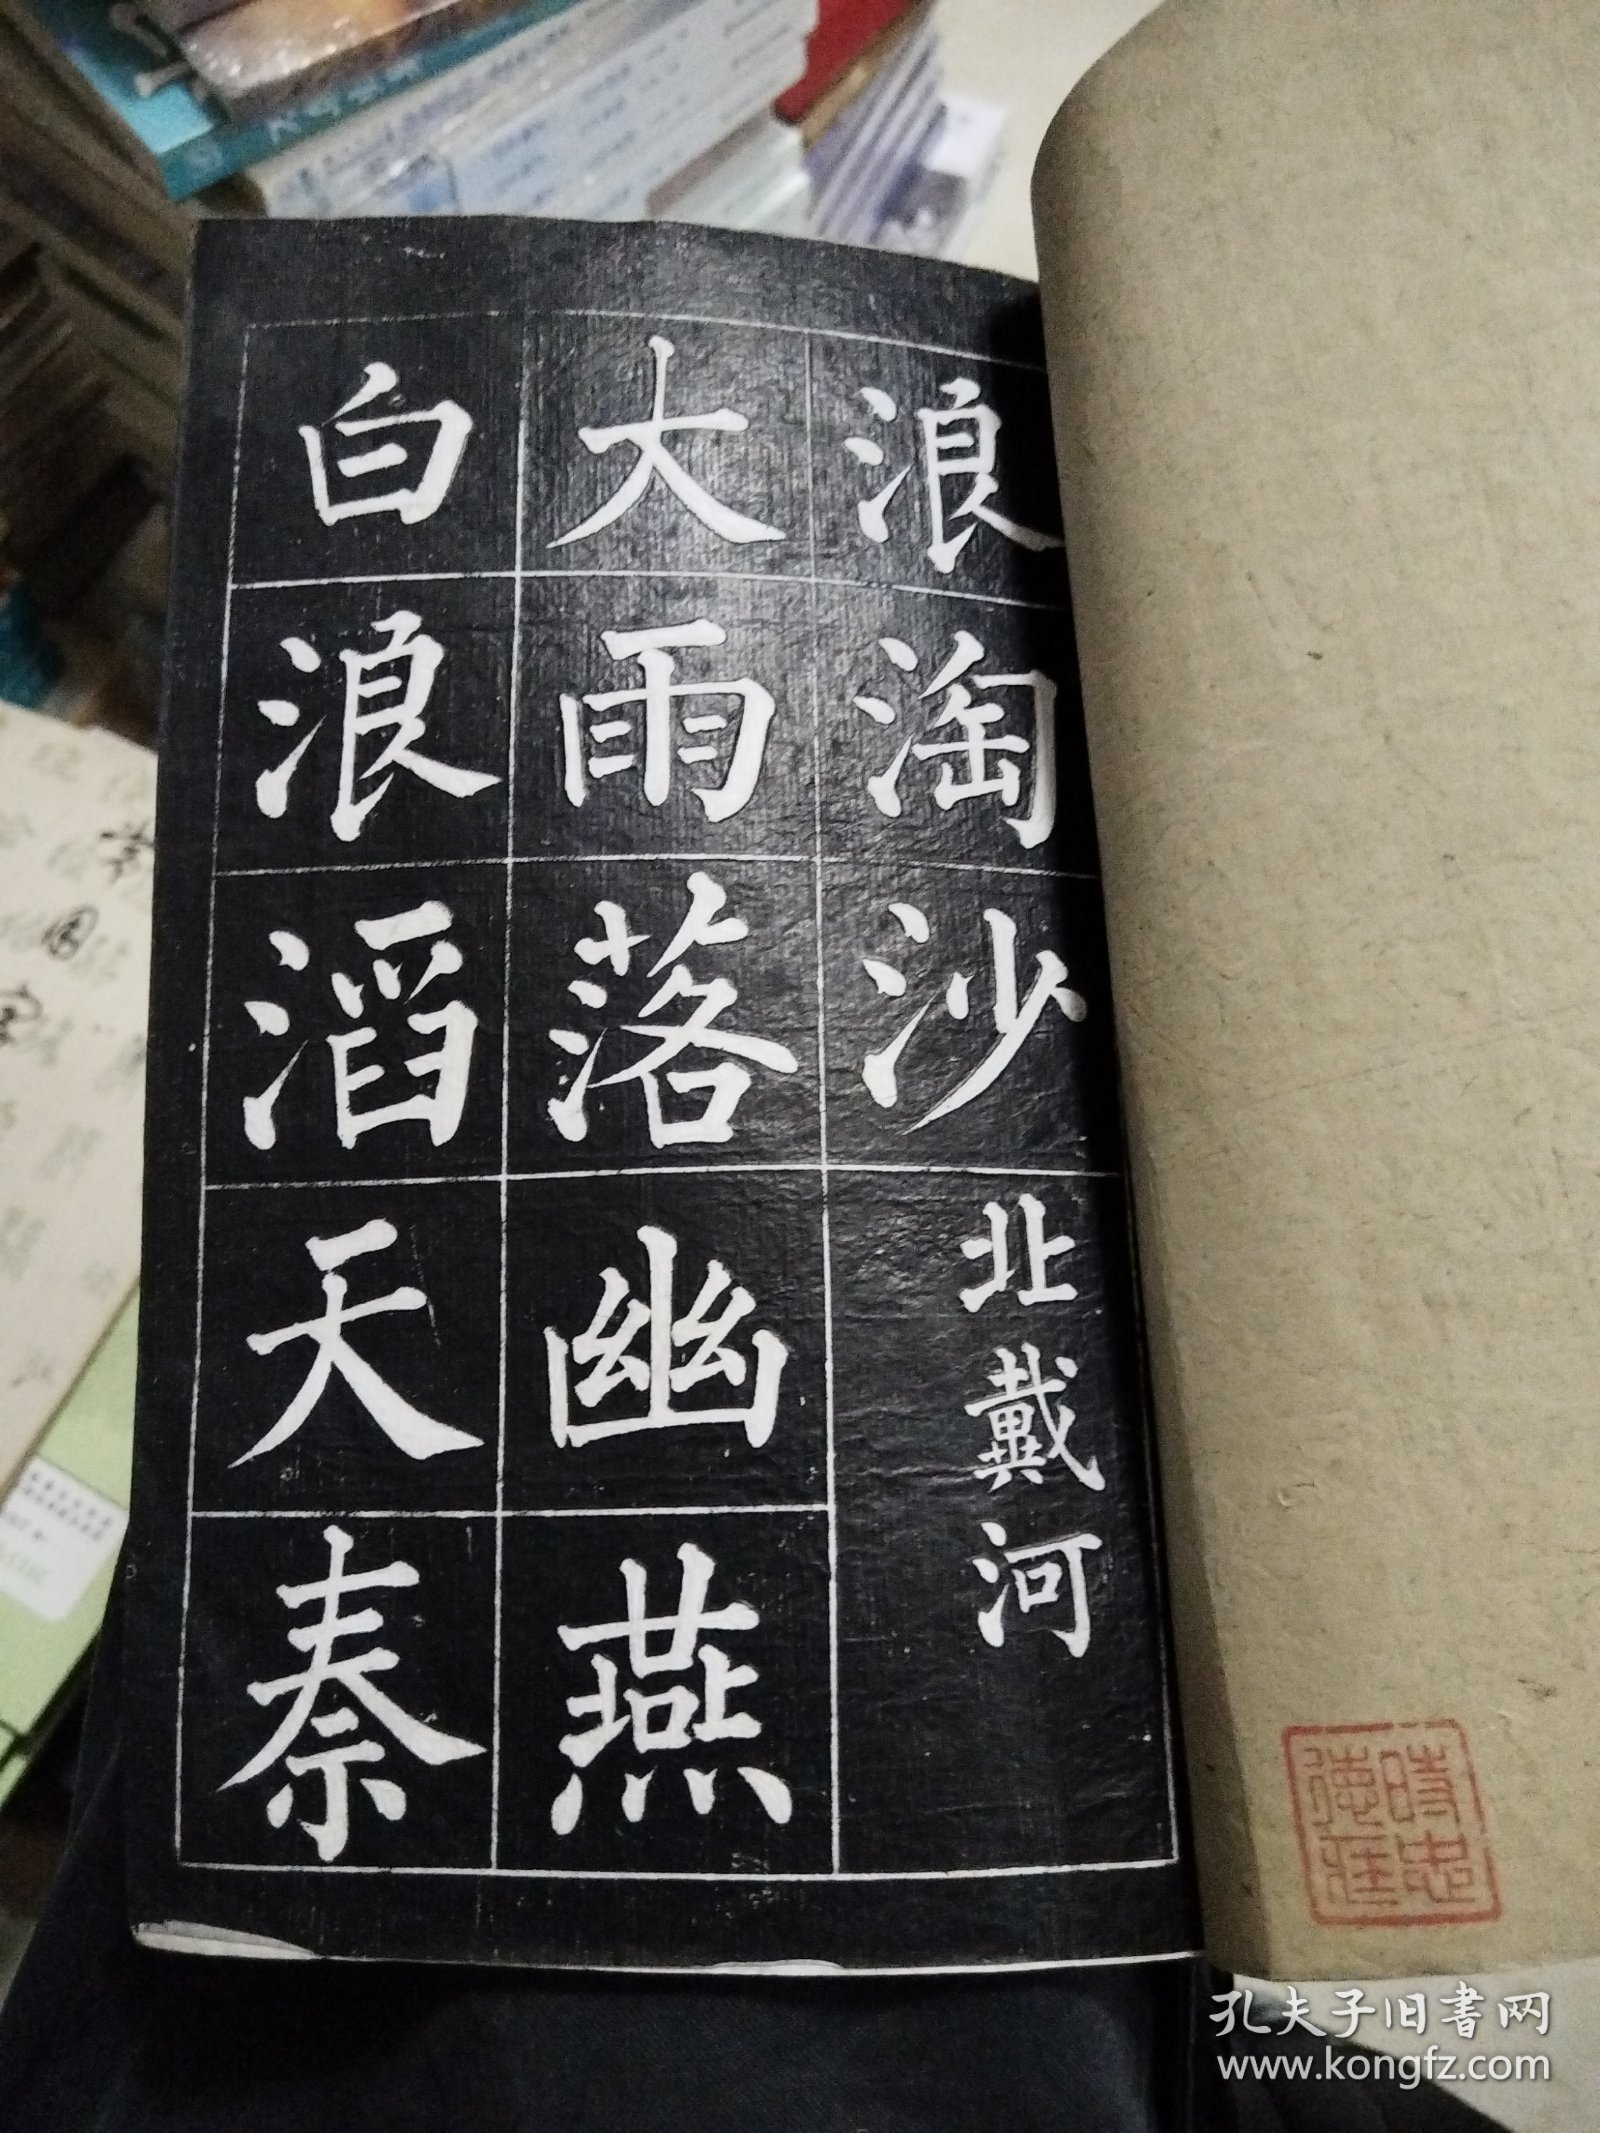 浪淘沙 北戴河
大雨落幽燕
白浪滔天秦
孔夫子旧书网
www.kongfz.com